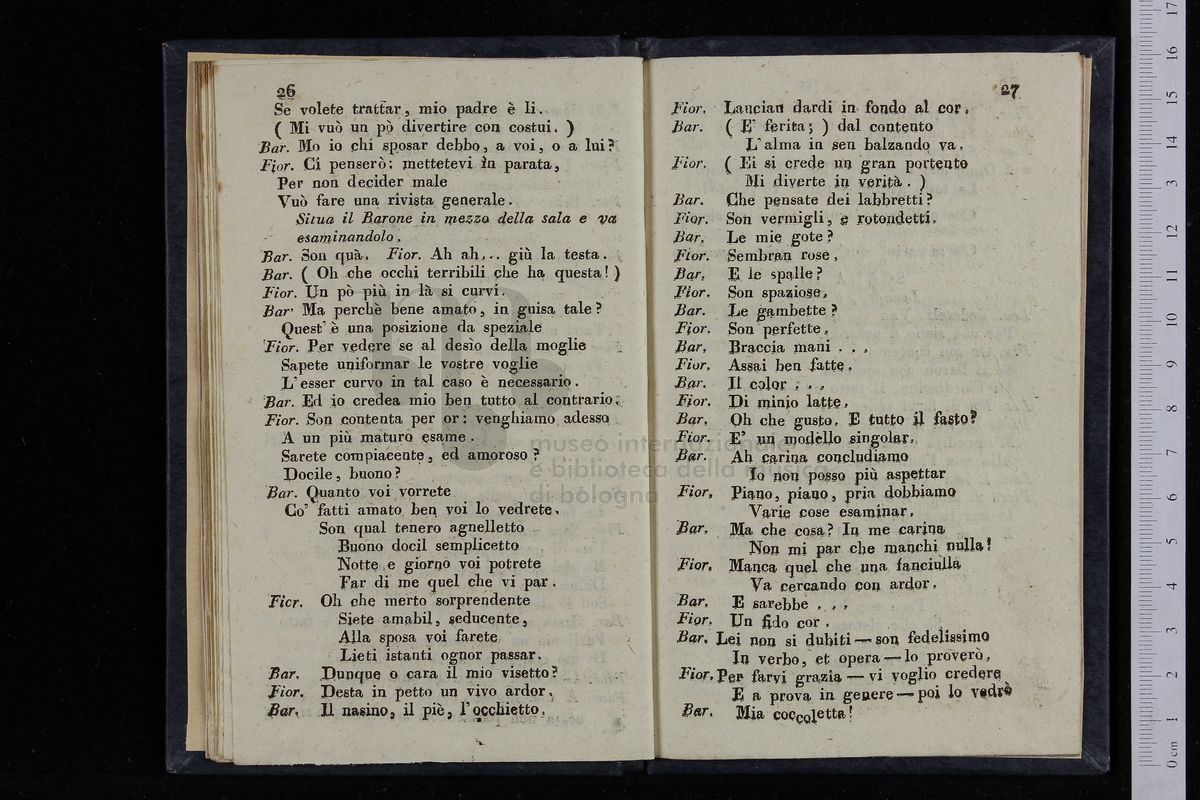 26
Se volete trattar, mio padre è lì.
( Mi vuò un pò divertire con costui. )
Bar. Mo io chi sposar debbo, a voi, o a lui?
Fior. Ci penserò: mettetevi in parata,
Per non decider male
Vuò fare una rivista generale.
Situa il Barone in mezzo della sala e va
esaminandolo.
Bar. Son quà. Fior. Ah ah... giù la testa.
Bar. ( Oh che occhi terribili che ha questa! )
Fior. Un pò più in là si curvi.
Bar. Ma perchè bene amato, in guisa tale?
Quest' è una posizione da speziale
Fior. Per vedere se al desìo della moglie
Sapete uniformar le vostre voglie
L'esser curvo in tal caso è necessario.
Bar. Ed io credea mio ben tutto al contrario.
Fior. Son contenta per or: venghiamo adesso
A un più maturo esame.
Sarete compiacente, ed amoroso?
Docile, buono?
Bar. Quanto voi vorrete
Co' fatti amato ben voi lo vedrete.
Son qual tenero agnelletto
Buono docil semplicetto
Notte e giorno voi potrete
Far di me quel che vi par.
Ficr. Oh che merto sorprendente
Siete amabil, seducente,
Alla sposa voi farete
Lieti istanti ognor passar.
Bar. Dunque o cara il mio visetto?
Fior. Desta in petto un vivo ardor,
Bar. Il nasino, il piè, l'occhietto.
27
Fior. Lancian dardi in fondo al cor.
Bar. ( E' ferita; ) dal contento
L'alma in sen balzando va.
Fior. ( Ei si crede un gran portento
Mi diverte in verità. )
Bar. Che pensate dei labbretti?
Fior. Son vermigli, e rotondetti.
Bar. Le mie gote?
Fior. Sembran rose,
Bar. E le spalle?
Fior. Son spaziose,
Bar. Le gambette?
Fior. Son perfette,
Bar. Braccia mani . . .
Fior. Assai ben fatte.
Bar. Il color . . .
Fior. Di minio latte,
Bar. Oh che gusto. E tutto il fasto?
Fior. E' un modèllo singolar.
Bar. Ah carina concludiamo
Io non posso più aspettar
Fior. Piano, piano, pria dobbiamo
Varie cose esaminar.
Bar. Ma che cosa? In me carina
Non mi par che manchi nulla!
Fior. Manca quel che una fanciulla
Va cercando con ardor.
Bar. E sarebbe . . .
Fior. Un fido cor.
Bar. Lei non si dubiti — son fedelissimo
In verbo, et opera — lo proverò,
Fior. Per farvi grazia — vi voglio credere
E a prova in genere — poi lo vedrò
Bar. Mia coccoletta!
museo internazionale
e biblioteca della musica
di bologna
0 cm 1 2 3 4 5 6 7 8 9 10 11 12 13 14 15 16 17